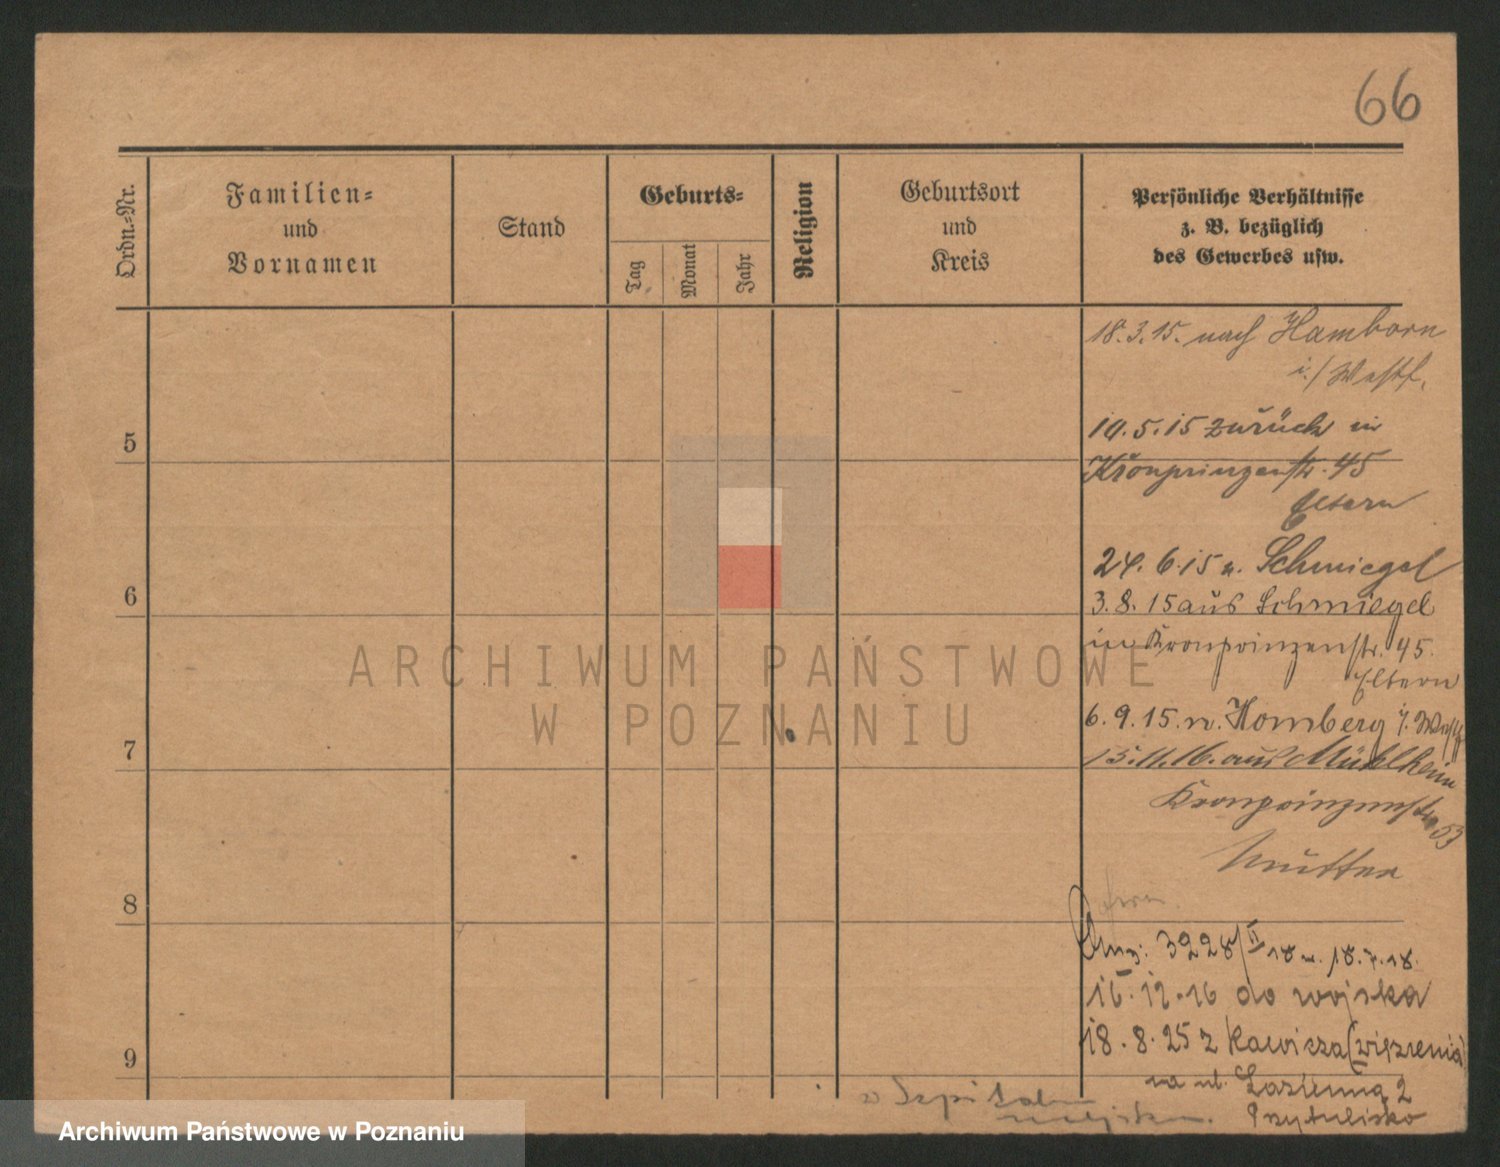 66
Ordn.-Nr.
Familien-
und
Vornamen
Stand
Geburts-
Tag
Monat
Jahr
Religion
Geburtsort
und
Kreis
Persönliche Verhältnisse
z. B. bezüglich
des Gewerbes usw.
18.3.15. nach Hamborn
i./Westf.
5
10.5.15 zurück in
Kronprinzenstr. 45
Eltern
24.6.15 n. Schmiegel
6
3.8.15 aus Schmiegel
in Kronprinzenstr. 45.
Eltern
ARCHIWUM PAŃSTWOWE
W POZNANIU
6.9.15. n. Homberg i. Westf
7
15.11.16. aus Mühlheim
Kronprinzenstr 53
Mutter
8
3228/II 18 v. 18.7.18.
15.12.16 do wojska
18.8.25 z Rawicza (więzienia)
9
na ul. Łazienną 2
Przytulisko
w Szpitalu
miejskim.
Archiwum Państwowe w Poznaniu